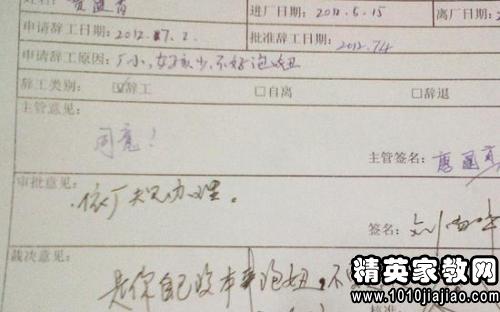 姓名: 进厂日期: 2012.5.15 离厂日期: 2
申请辞工日期: 2012.7.2. 批准辞工日期: 2012.7.4
申请辞工原因: 厂小,女孩少,不好泡妞
辞工类别: ☑辞工 □自离 □辞退
主管意见:
同意!
主管签名:
审批意见:
依厂规办理。
签名:
裁决意见:
是你自己没本事泡妞,不
精英家教网
www.1010jiajiao.com